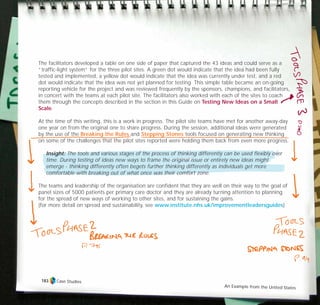 The facilitators developed a table on one side of paper that captured the 43 ideas and could serve as a
"traffic-light system" for the three pilot sites. A green dot would indicate that the idea had been fully
tested and implemented, a yellow dot would indicate that the idea was currently under test, and a red
dot would indicate that the idea was not yet planned for testing. This simple table became an on-going
reporting vehicle for the project and was reviewed frequently by the sponsors, champions, and facilitators,
in concert with the teams at each pilot site. The facilitators also worked with each of the sites to coach
them through the concepts described in the section in this Guide on Testing New Ideas on a Small
Scale.
At the time of this writing, this is a work in progress. The pilot site teams have met for another away-day
one year on from the original one to share progress. During the session, additional ideas were generated
by the use of the Breaking the Rules and Stepping Stones tools focused on generating new thinking
on some of the challenges that the pilot sites reported were holding them back from even more progress.
Insight: The tools and various stages of the process of thinking differently can be used flexibly over
time. During testing of ideas new ways to frame the original issue or entirely new ideas might
emerge - thinking differently often begets further thinking differently as individuals get more
comfortable with breaking out of what once was their comfort zone.
The teams and leadership of the organisation are confident that they are well on their way to the goal of
panel sizes of 5000 patients per primary care doctor and they are already turning attention to planning
for the spread of new ways of working to other sites, and for sustaining the gains.
(For more detail on spread and sustainability, see www.institute.nhs.uk/improvementleadersguides)
TOOLS PHASE 3
TOOLS PHASE 2
BREAKING THE RULES
TOOLS
PHASE 2
STEPPING STONES
183 Case Studies
An Example from the United States